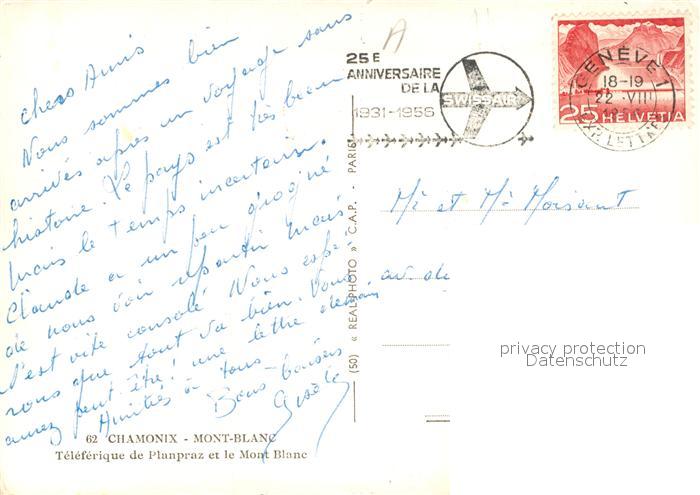 chers Amis
Nous sommes bien
arrivés après un voyage sans
histoire. Le pays est très beau
mais le temps incertain.
Claude a un peu grogné
de nous voir repartir mais
s'est vite consolé Nous espé-
rons que tout va bien. Vous
aurez peut être une lettre demain
Amitiés à tous
Bons baisers
Gisèle
62 CHAMONIX - MONT-BLANC
Téléférique de Planpraz et le Mont Blanc
(50) « REAL-PHOTO » C.A.P. - PARIS
25E
ANNIVERSAIRE
DE LA
1931-1956
SWISSAIR
GENÈVE 1
18-19
22. VIII
EXP. LETTRES
25 HELVETIA
Mr et Me Moisant
av de
privacy protection
Datenschutz